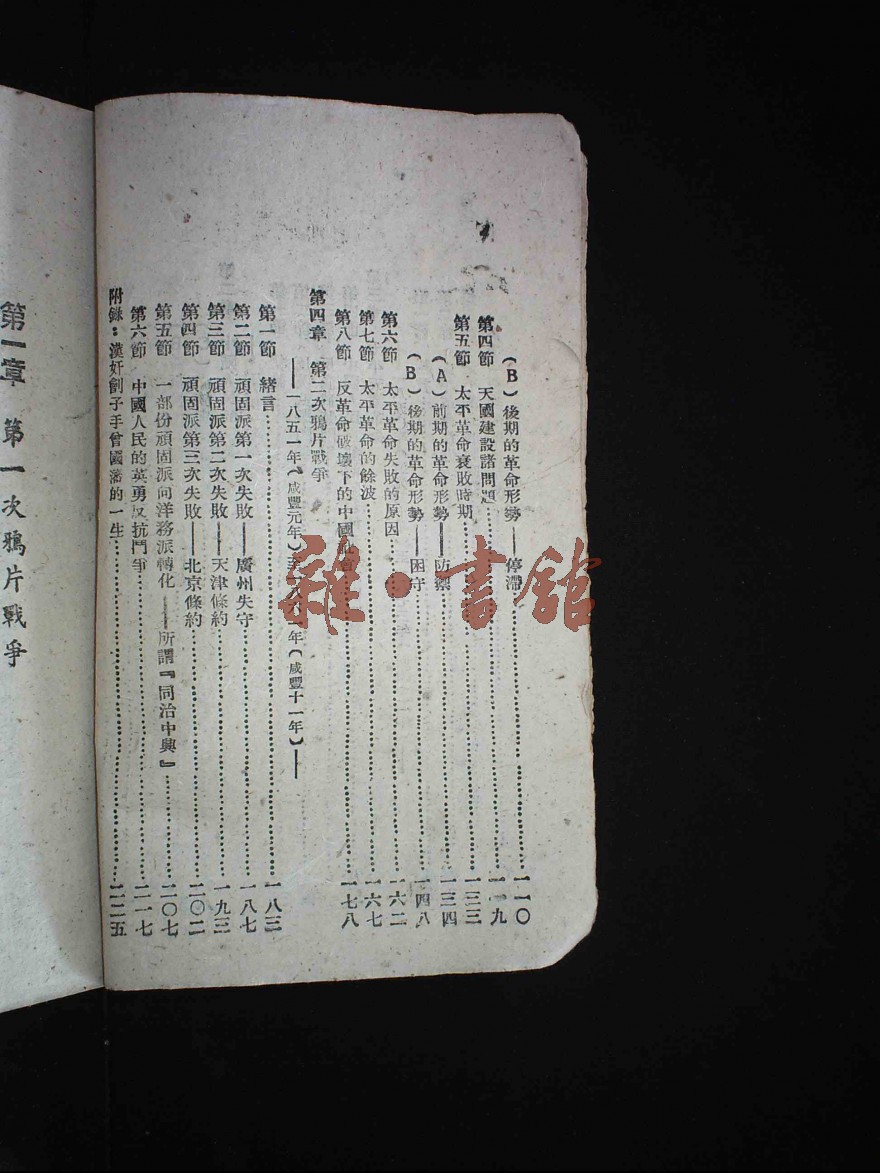 (B)後期的革命形勢——停滯……一一〇
第四節 天國建設諸問題……一一九
第五節 太平革命衰敗時期……一三三
(A)前期的革命形勢——防禦……一三四
(B)後期的革命形勢——困守……一四八
第六節 太平革命失敗的原因……一六二
第七節 太平革命的餘波……一六七
第八節 反革命破壞下的中國……一七八
第四章 第二次鴉片戰爭
——一八五一年(咸豐元年)至一八六一年(咸豐十一年)——
第一節 緒言……一八三
第二節 頑固派第一次失敗——廣州失守……一八七
第三節 頑固派第二次失敗——天津條約……一九三
第四節 頑固派第三次失敗——北京條約……二〇二
第五節 一部份頑固派向洋務派轉化——所謂『同治中興』……二〇七
第六節 中國人民的英勇反抗鬥爭……二一七
附錄:漢奸劊子手曾國藩的一生……二二五
第一章 第一次鴉片戰爭
雜·書館